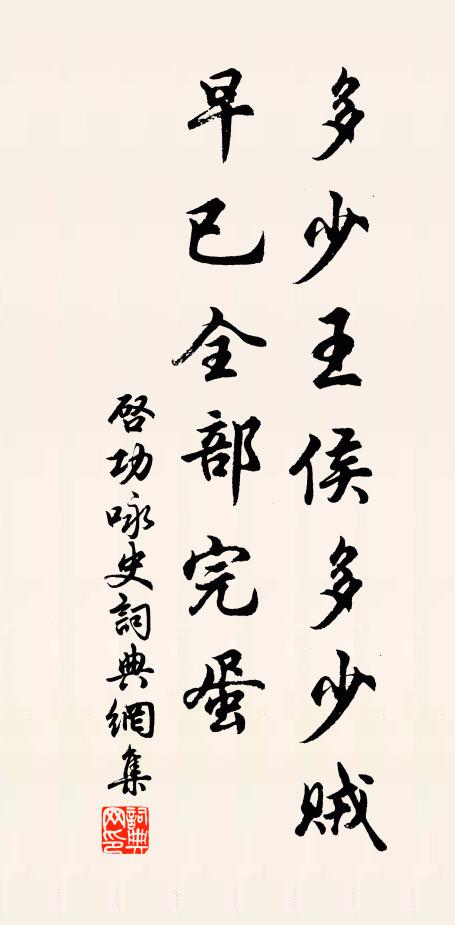 多少王侯多少贼
早已全部完蛋
啓功咏史詞典網集
詞典网印